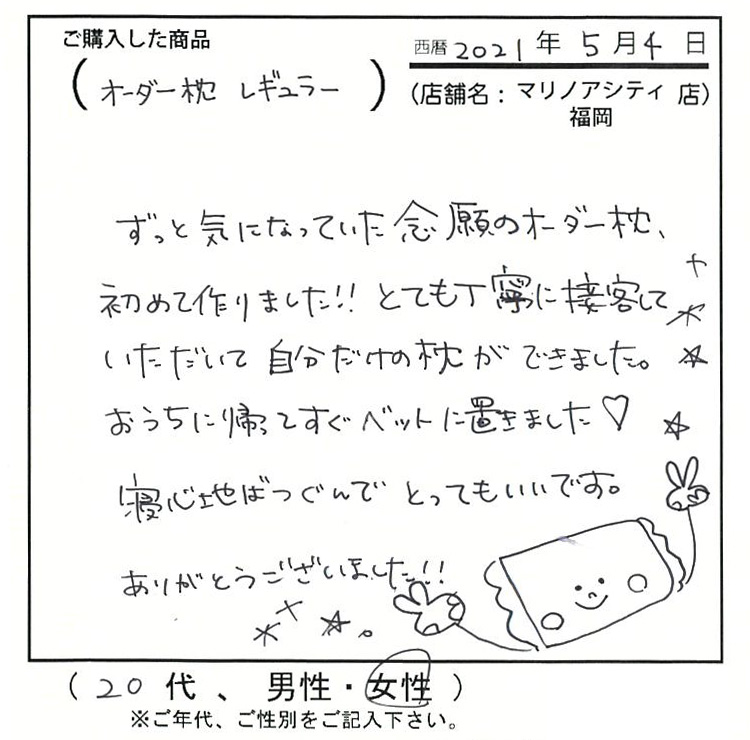 ご購入した商品
西暦 2021 年 5 月 4 日
(オーダー枕 レギュラー)
(店舗名:マリノアシティ 店)
福岡
ずっと気になっていた念願のオーダー枕、
初めて作りました!! とても丁寧に接客して
いただいて 自分だけの枕ができました。
おうちに帰ってすぐベットに置きました♡
寝心地ばつぐんで とってもいいです。
ありがとうございました!!
(20 代、男性・女性)
※ご年代、ご性別をご記入下さい。